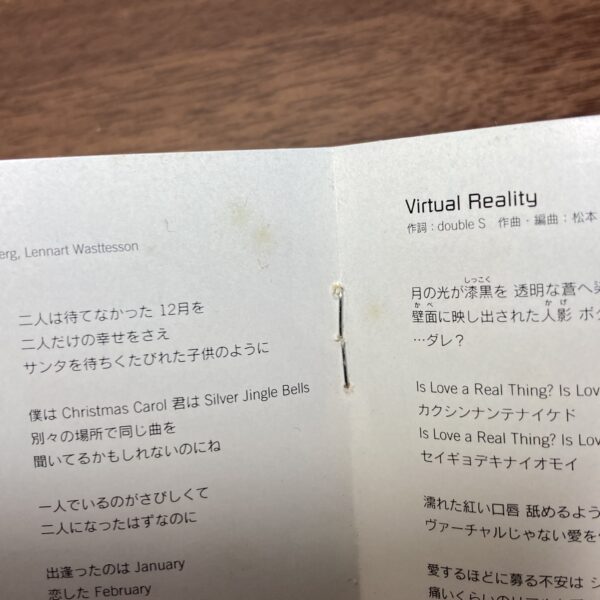 erg, Lennart Wasttesson
二人は待てなかった 12月を
二人だけの幸せをさえ
サンタを待ちくたびれた子供のように
僕は Christmas Carol 君は Silver Jingle Bells
別々の場所で同じ曲を
聞いてるかもしれないのにね
一人でいるのがさびしくて
二人になったはずなのに
出逢ったのは January
恋した February
Virtual Reality
作詞：double S 作曲・編曲：松本
しっこく
月の光が漆黒を 透明な蒼へ染
かべ かげ
壁面に映し出された人影 ボク
…ダレ？
Is Love a Real Thing? Is Lov
カクシンナンテナイケド
Is Love a Real Thing? Is Lov
セイギョデキナイオモイ
濡れた紅い口唇 舐めるよう
ヴァーチャルじゃない愛を
愛するほどに募る不安は シ
痛いくらいのリアルを